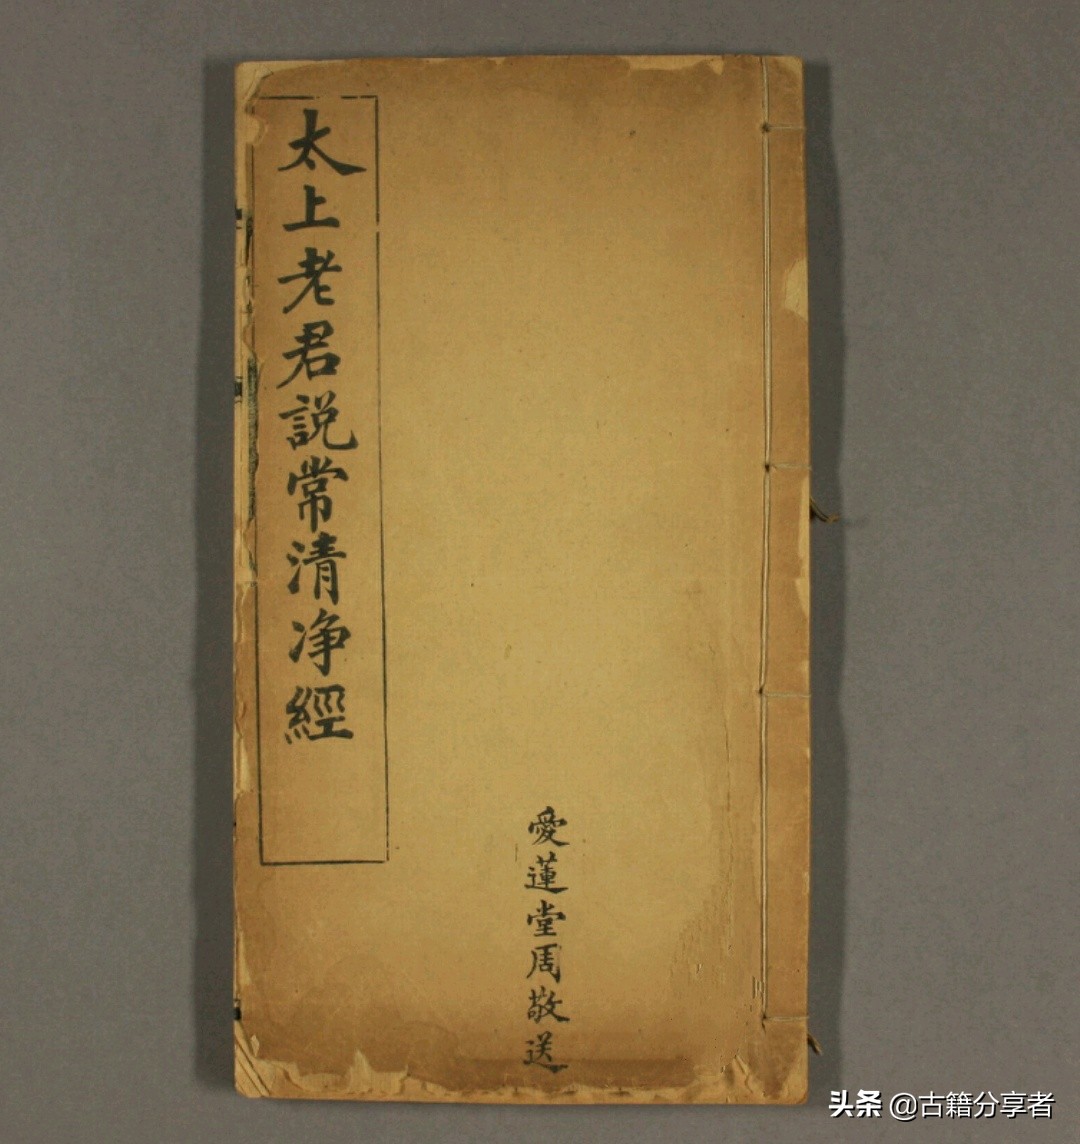 太上老君説常清净經
愛蓮堂周敬送
头条 @古籍分享者